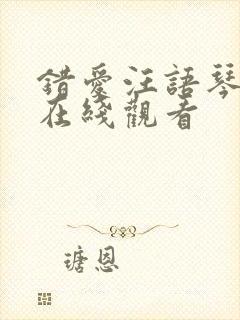 錯愛汪語琴
在綫觀看
瑭恩